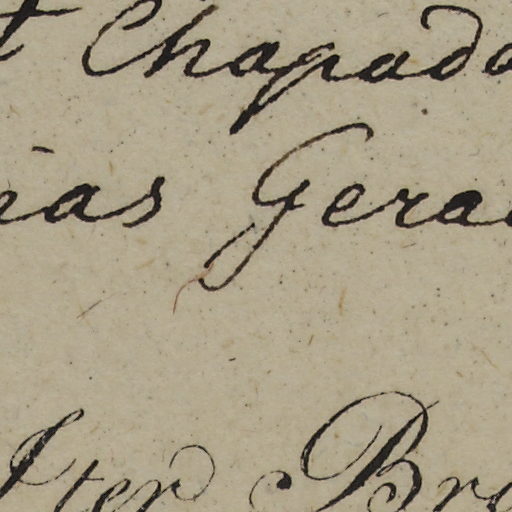 t Chapada
ias Gerae
Iter Bra